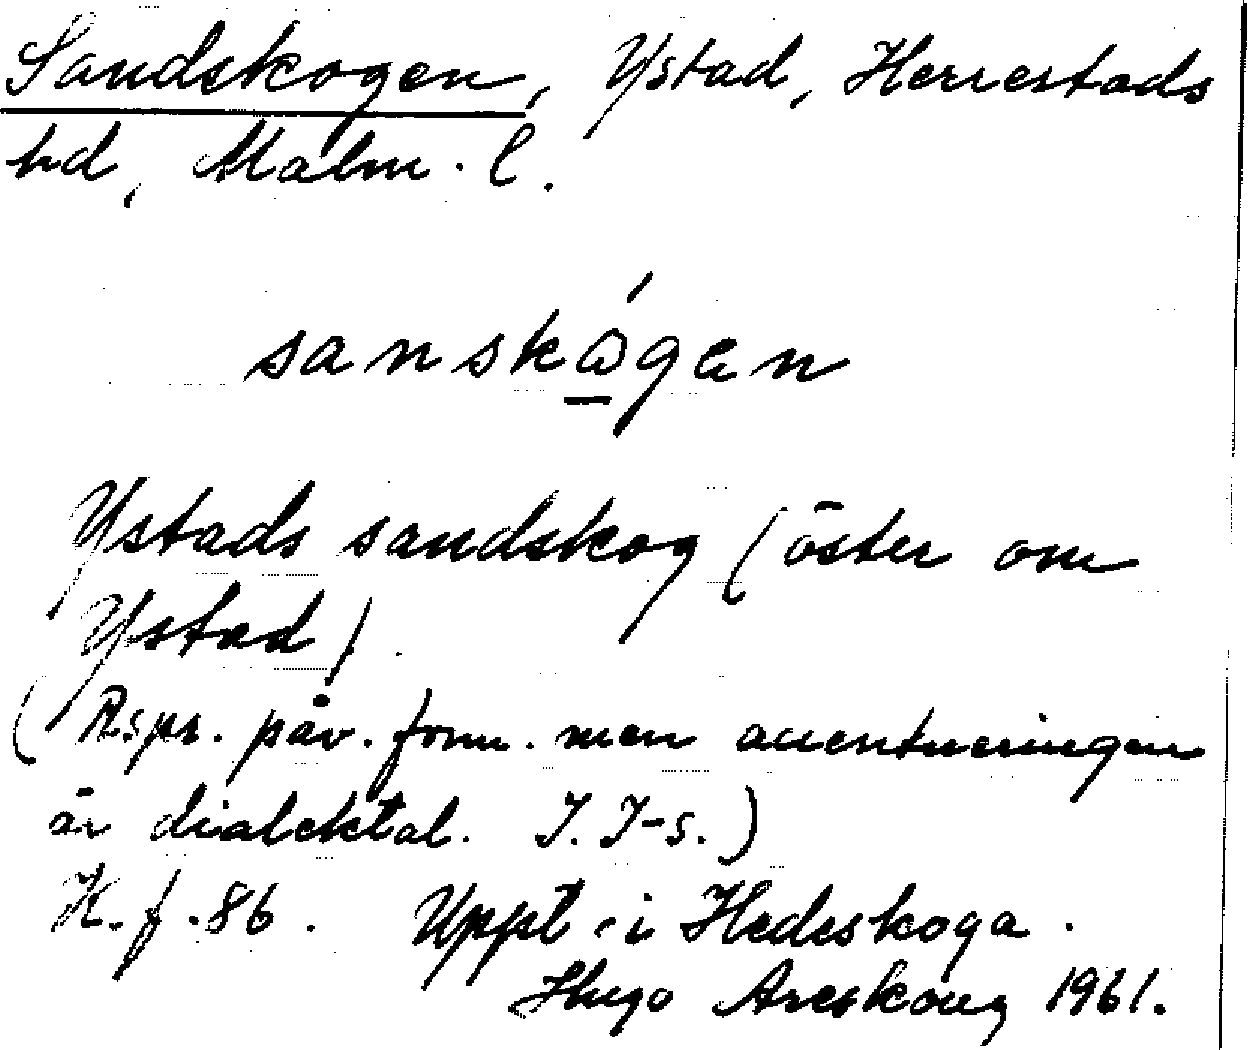 Sandskogen, Ystad, Herrestads
hd, Malm. l.
sanskågen
Ystads sandskog (öster om
Ystad).
(Rspr. påv. form. men accentueringen
är dialektal. I. I-s.)
K. f. 86. Uppt. i Hedeskoga.
Hugo Areskoug 1961.